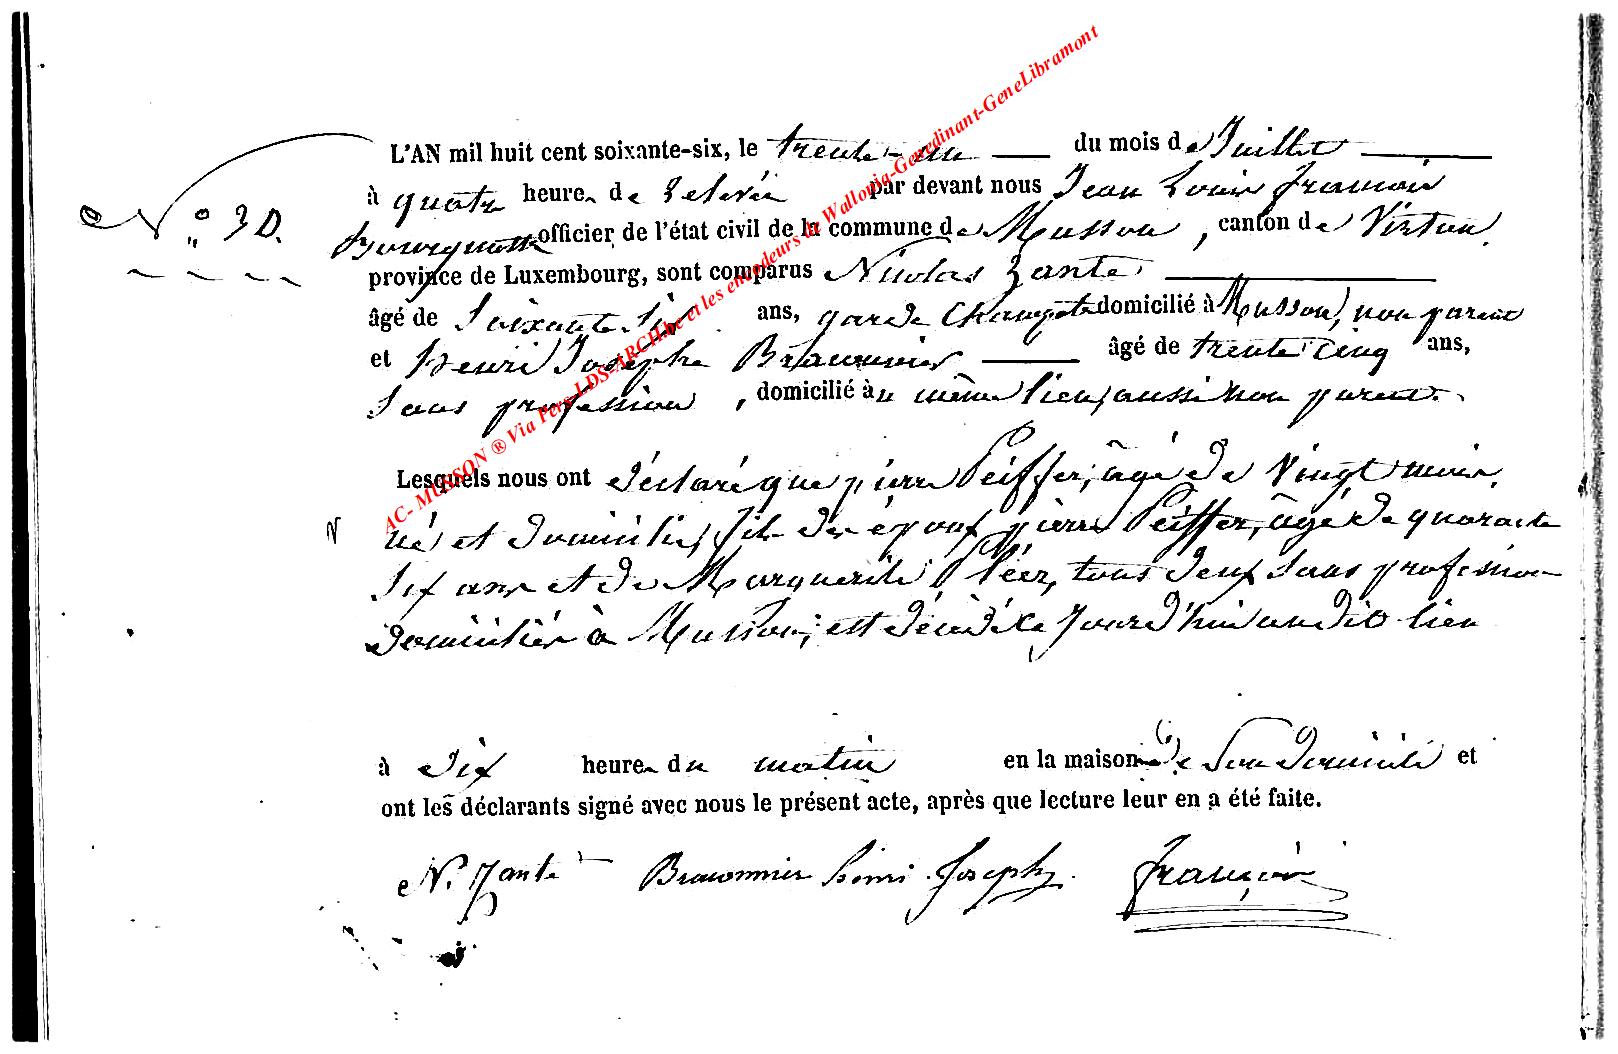 L'AN mil huit cent soixante-six, le trente-un du mois de Juillet
à quatre heures de relevée par devant nous Jean Louis François
N° 30. officier de l'état civil de la commune de Musson, canton de Virton,
province de Luxembourg, sont comparus Nicolas Zante
âgé de Soixante Six ans, garde Champetre domicilié à Musson, non parent
et Henri Josephe Brawonnier âgé de trente cinq ans,
Sans profession, domicilié au même lieu, aussi non parent.
Lesquels nous ont déclaré que pierre Peiffer, âgé de Vingt mois,
né et domicilié, fils des époux pierre Peiffer, âgé de quarante
Six ans et de Marguerite, tous deux Sans profession
domiciliés à Musson; est décédé ce Jourd'hui au dit lieu
à dix heures du matin en la maison de Son domicile et
ont les déclarants signé avec nous le présent acte, après que lecture leur en a été faite.
N. Zante Brawonnier henri Joseph François
AC- MUSSON ® Via Pers-LDS-ARCHbe et les encodeurs de Wallonia-Genedinant-GeneLibramont